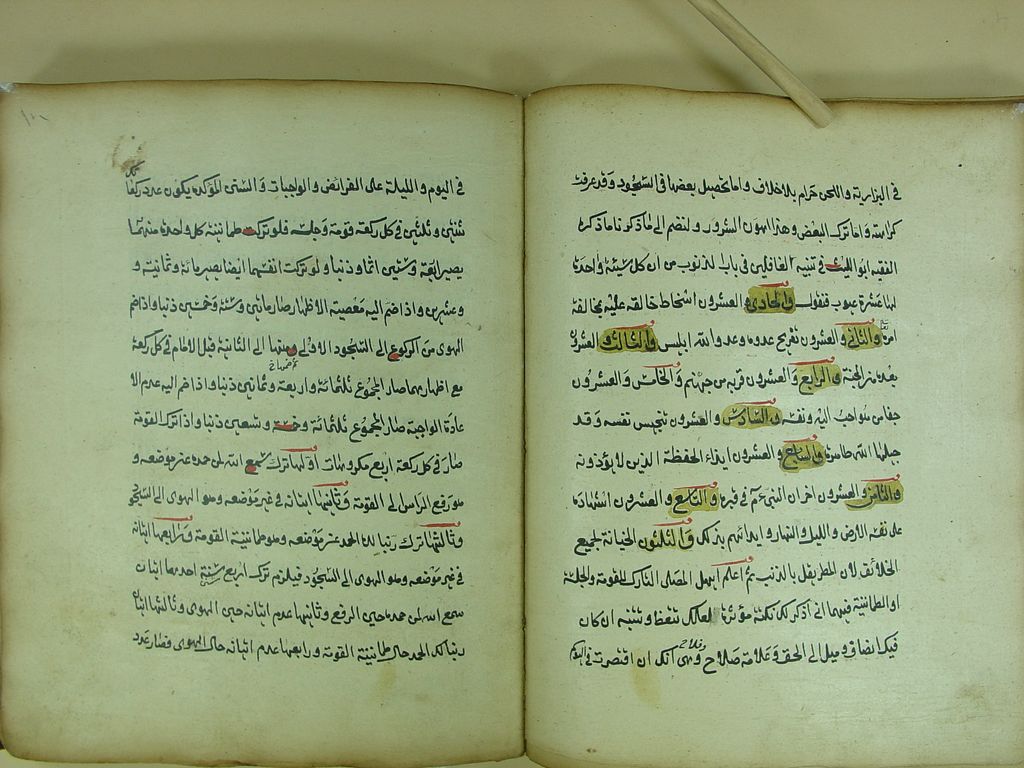 في البزازية واللحن حرام بلا خلاف واما تحصيل بعضها في السجود وقد عرفت
كراهته واما ترك البعض وهذا اهون الشرور ولنضم الى ما ذكرنا ما ذكره
الفقيه ابو الليث في تنبيه الغافلين في باب الذنوب من ان كل سيئة واحدة
لها عشرة عيوب فنقول والحادي والعشرون اسخاط خالقه عليه بمخالفة
امره والثاني والعشرون تفريح عدوه وعدو الله ابليس والثالث والعشرون
بعده من الجنة والرابع والعشرون قربه من جهنم والخامس والعشرون
جفا من هو احب اليه ونفسه والسادس والعشرون تنجيس نفسه وقد
جعلها الله طاهرة والسابع والعشرون ايذاء الحفظة الذين لا يؤذونه
والثامن والعشرون احزان النبي عم في قبره والتاسع والعشرون اشهاده
على نفسه الارض والليل والنهار وايذائهم بذلك والثلثون الخيانة لجميع
الخلائق لان المطر يقل بالذنب ثم اعلم ايها المصلى التارك للقومة والجلسة
او الطمانينة فيهما انى اذكر لك نكتة مؤثرة لعلك تتعظ وتنتبه ان كان
فيك انصاف وميل الى الحق وعلامة صلاح وفلاح وهى انك ان اقتصرت في اليوم
في اليوم والليلة على الفرائض والواجبات والسنن المؤكدة يكون عدد ركعاتها
ثنتين وثلثين في كل ركعة قومة وجلسة فلو تركت طمانينة كل واحدة منهما
يصير اربعة وستين اثما وذنبا ولو تركت انفسهما ايضا يصير مائة وثمانية و
عشرين واذا ضم اليه معصية الاظهار صار مائتين وستة وخمسين ذنبا واذا ضم
الهوى من الركوع الى السجود الاولى ومنها الى الثانية قبل الامام في كل ركعة
مع اظهارهما صار المجموع ثلثمائة واربعة وثمانين ذنبا واذا ضم اليه عدم الا
عادة الواجبة صار المجموع ثلثمائة وخمسة وتسعين ذنبا واذا ترك القومة
صار في كل ركعة اربع مكروهات اولها ترك سمع الله لمن حمده عن موضعه و
هو رفع الراس الى القومة وثانيها اتيانه في غير موضعه وهو الهوى الى السجود
وثالثها ترك ربنا لك الحمد عن موضعه وهو طمانينة القومة ورابعها اتيانه
في غير موضعه وهو الهوى الى السجود فيلزم ترك اربع سنن احدها اتيان
سمع الله لمن حمده حين الرفع وثانيها عدم اتيانه حين الهوى وثالثها اتيان
ربنا لك الحمد حال طمانينة القومة ورابعها عدم اتيانه حال الهوى فصار عدد